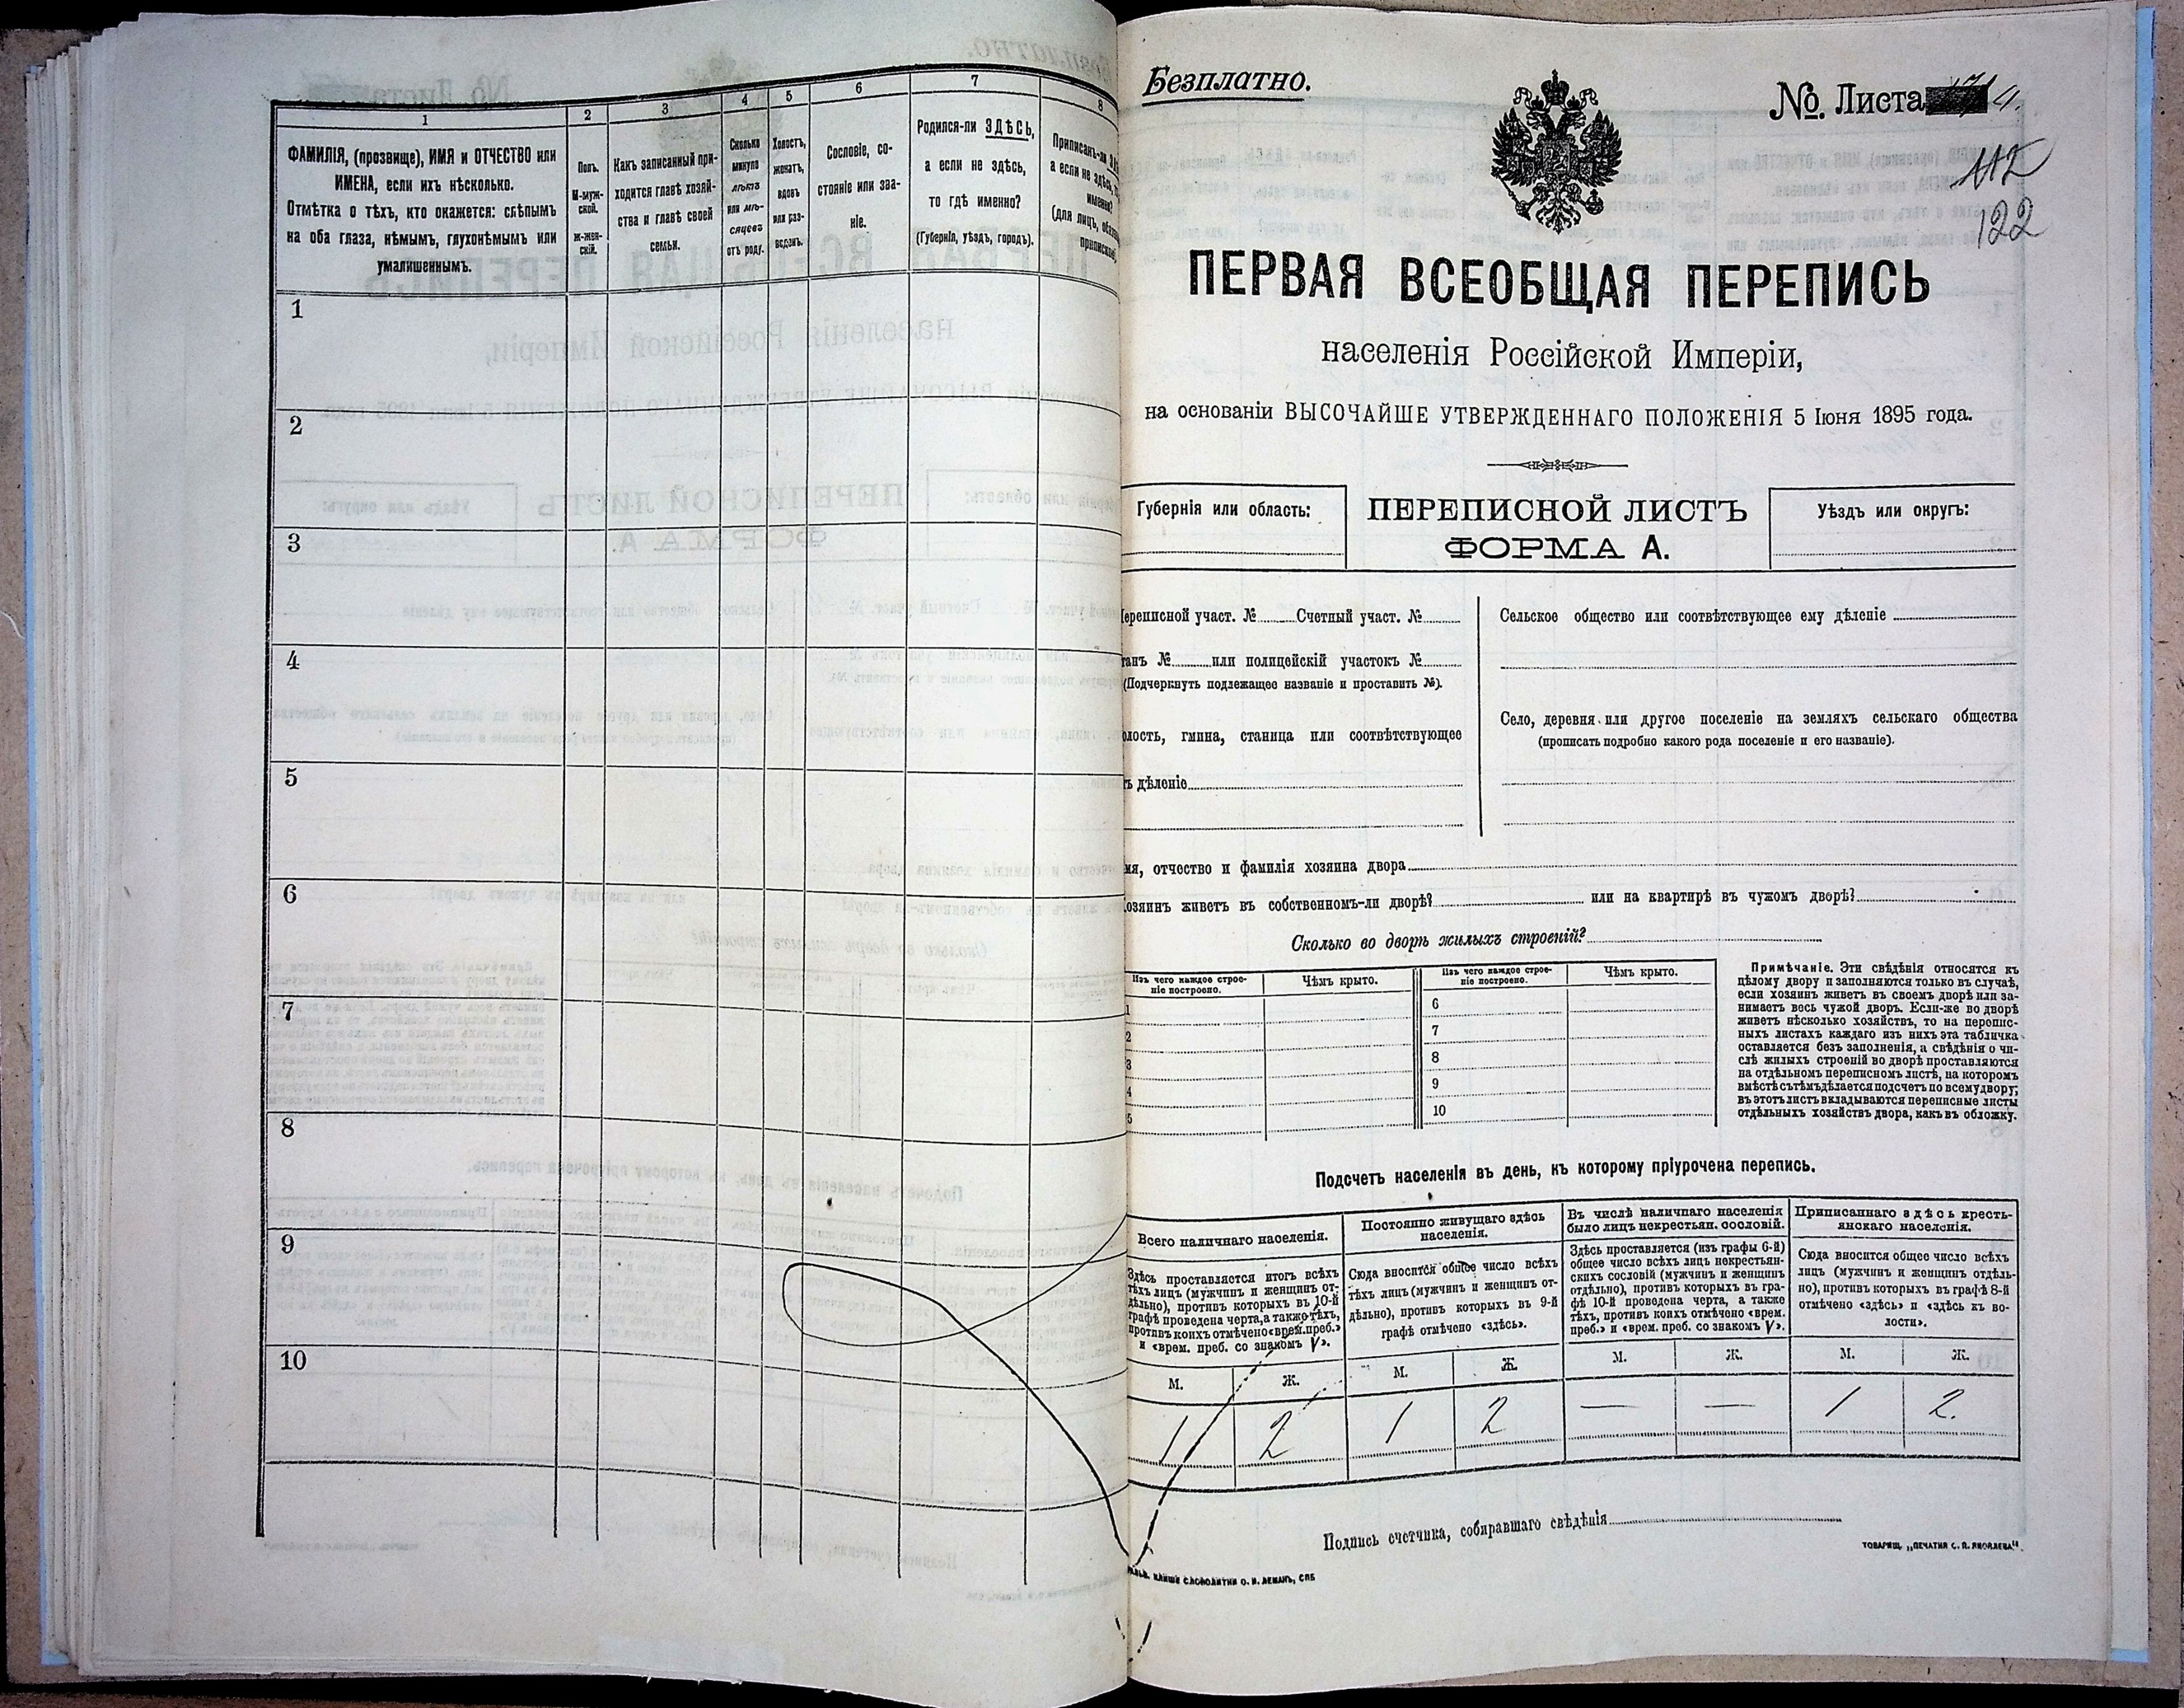 1
2
3
4
5
6
7
8
ФАМИЛІЯ, (прозвище), ИМЯ и ОТЧЕСТВО или
ИМЕНА, если ихъ нѣсколько.
Отмѣтка о тѣхъ, кто окажется: слѣпымъ
на оба глаза, нѣмымъ, глухонѣмымъ или
умалишеннымъ.
Полъ.
М-муж-
ской.
ж-жен-
скій.
Какъ записанный при-
ходится главѣ хозяй-
ства и главѣ своей
семьи.
Сколько
минуло
лѣтъ
или мѣ-
сяцевъ
отъ роду.
Холостъ,
женатъ,
вдовъ
или раз-
веденъ.
Сословіе, со-
стояніе или зва-
ніе.
Родился-ли ЗДѢСЬ,
а если не здѣсь,
то гдѣ именно?
(Губернія, уѣздъ, городъ).
Приписанъ-ли
а если не здѣсь,
именно?
(для лицъ,
1
2
3
4
5
6
7
8
9
10
Безплатно.
№ Листа 4.
112
122
ПЕРВАЯ ВСЕОБЩАЯ ПЕРЕПИСЬ
населенія Россійской Имперіи,
на основаніи ВЫСОЧАЙШЕ УТВЕРЖДЕННАГО ПОЛОЖЕНІЯ 5 Іюня 1895 года.
Губернія или область:
ПЕРЕПИСНОЙ ЛИСТЪ
ФОРМА А.
Уѣздъ или округъ:
ереписной участ. № Счетный участ. №
танъ № или полицейскій участокъ №
(Подчеркнуть подлежащее названіе и проставить №).
олость, гмина, станица или соотвѣтствующее
ъ дѣленіе
Сельское общество или соотвѣтствующее ему дѣленіе
Село, деревня или другое поселеніе на земляхъ сельскаго общества
(прописать подробно какого рода поселеніе и его названіе).
мя, отчество и фамилія хозяина двора
озяинъ живетъ въ собственномъ-ли дворѣ? или на квартирѣ въ чужомъ дворѣ?
Сколько во дворѣ жилыхъ строеній?
Изъ чего каждое строе-
ніе построено.
Чѣмъ крыто.
Изъ чего каждое строе-
ніе построено.
Чѣмъ крыто.
1
2
3
4
5
6
7
8
9
10
Примѣчаніе. Эти свѣдѣнія относятся къ
цѣлому двору и заполняются только въ случаѣ,
если хозяинъ живетъ въ своемъ дворѣ или за-
нимаетъ весь чужой дворъ. Если-же во дворѣ
живетъ нѣсколько хозяйствъ, то на перепис-
ныхъ листахъ каждаго изъ нихъ эта табличка
оставляется безъ заполненія, а свѣдѣнія о чи-
слѣ жилыхъ строеній во дворѣ проставляются
на отдѣльномъ переписномъ листѣ, на которомъ
вмѣстѣ съ тѣмъ дѣлается подсчетъ по всему двору;
въ этотъ листъ вкладываются переписные листы
отдѣльныхъ хозяйствъ двора, какъ въ обложку.
Подсчетъ населенія въ день, къ которому пріурочена перепись.
Всего наличнаго населенія.
Здѣсь проставляется итогъ всѣхъ
тѣхъ лицъ (мужчинъ и женщинъ от-
дѣльно), противъ которыхъ въ 10-й
графѣ проведена черта, а также тѣхъ,
противъ коихъ отмѣчено «врем. преб.»
и «врем. преб. со знакомъ V».
Постоянно живущаго здѣсь
населенія.
Сюда вносится общее число всѣхъ
тѣхъ лицъ (мужчинъ и женщинъ от-
дѣльно), противъ которыхъ въ 9-й
графѣ отмѣчено «здѣсь».
Въ числѣ наличнаго населенія
было лицъ некрестьян. сословій.
Здѣсь проставляется (изъ графы 6-й)
общее число всѣхъ лицъ некрестьян-
скихъ сословій (мужчинъ и женщинъ
отдѣльно), противъ которыхъ въ гра-
фѣ 10-й проведена черта, а также
тѣхъ, противъ коихъ отмѣчено «врем.
преб.» и «врем. преб. со знакомъ V».
Приписаннаго здѣсь кресть-
янскаго населенія.
Сюда вносится общее число всѣхъ
лицъ (мужчинъ и женщинъ отдѣль-
но), противъ которыхъ въ графѣ 8-й
отмѣчено «здѣсь» и «здѣсь къ во-
лости».
М. Ж. М. Ж. М. Ж. М. Ж.
1 2 1 2 — — 1 2.
Подпись счетчика, собиравшаго свѣдѣнія
ТОВАРИЩ. „ПЕЧАТНЯ С. П. ЯКОВЛЕВА“.
КЛИШЕ СЛОВОЛИТНИ О. И. ЛЕМАНЪ, СПБ